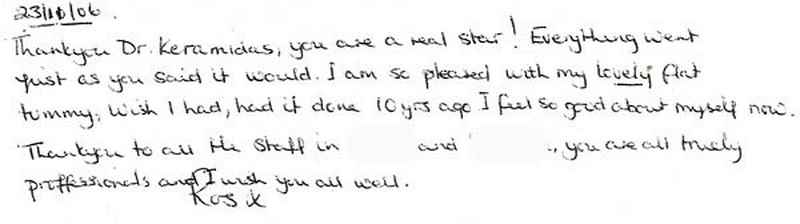 23/10/06.
Thankyou Dr. Keramidas, you are a real star! Everything went
just as you said it would. I am so pleased with my lovely flat
tummy, wish I had, had it done 10 yrs ago I feel so good about myself now.
Thankyou to all the staff in and , you are all truely
proffessionals and I wish you all well.
Ros x